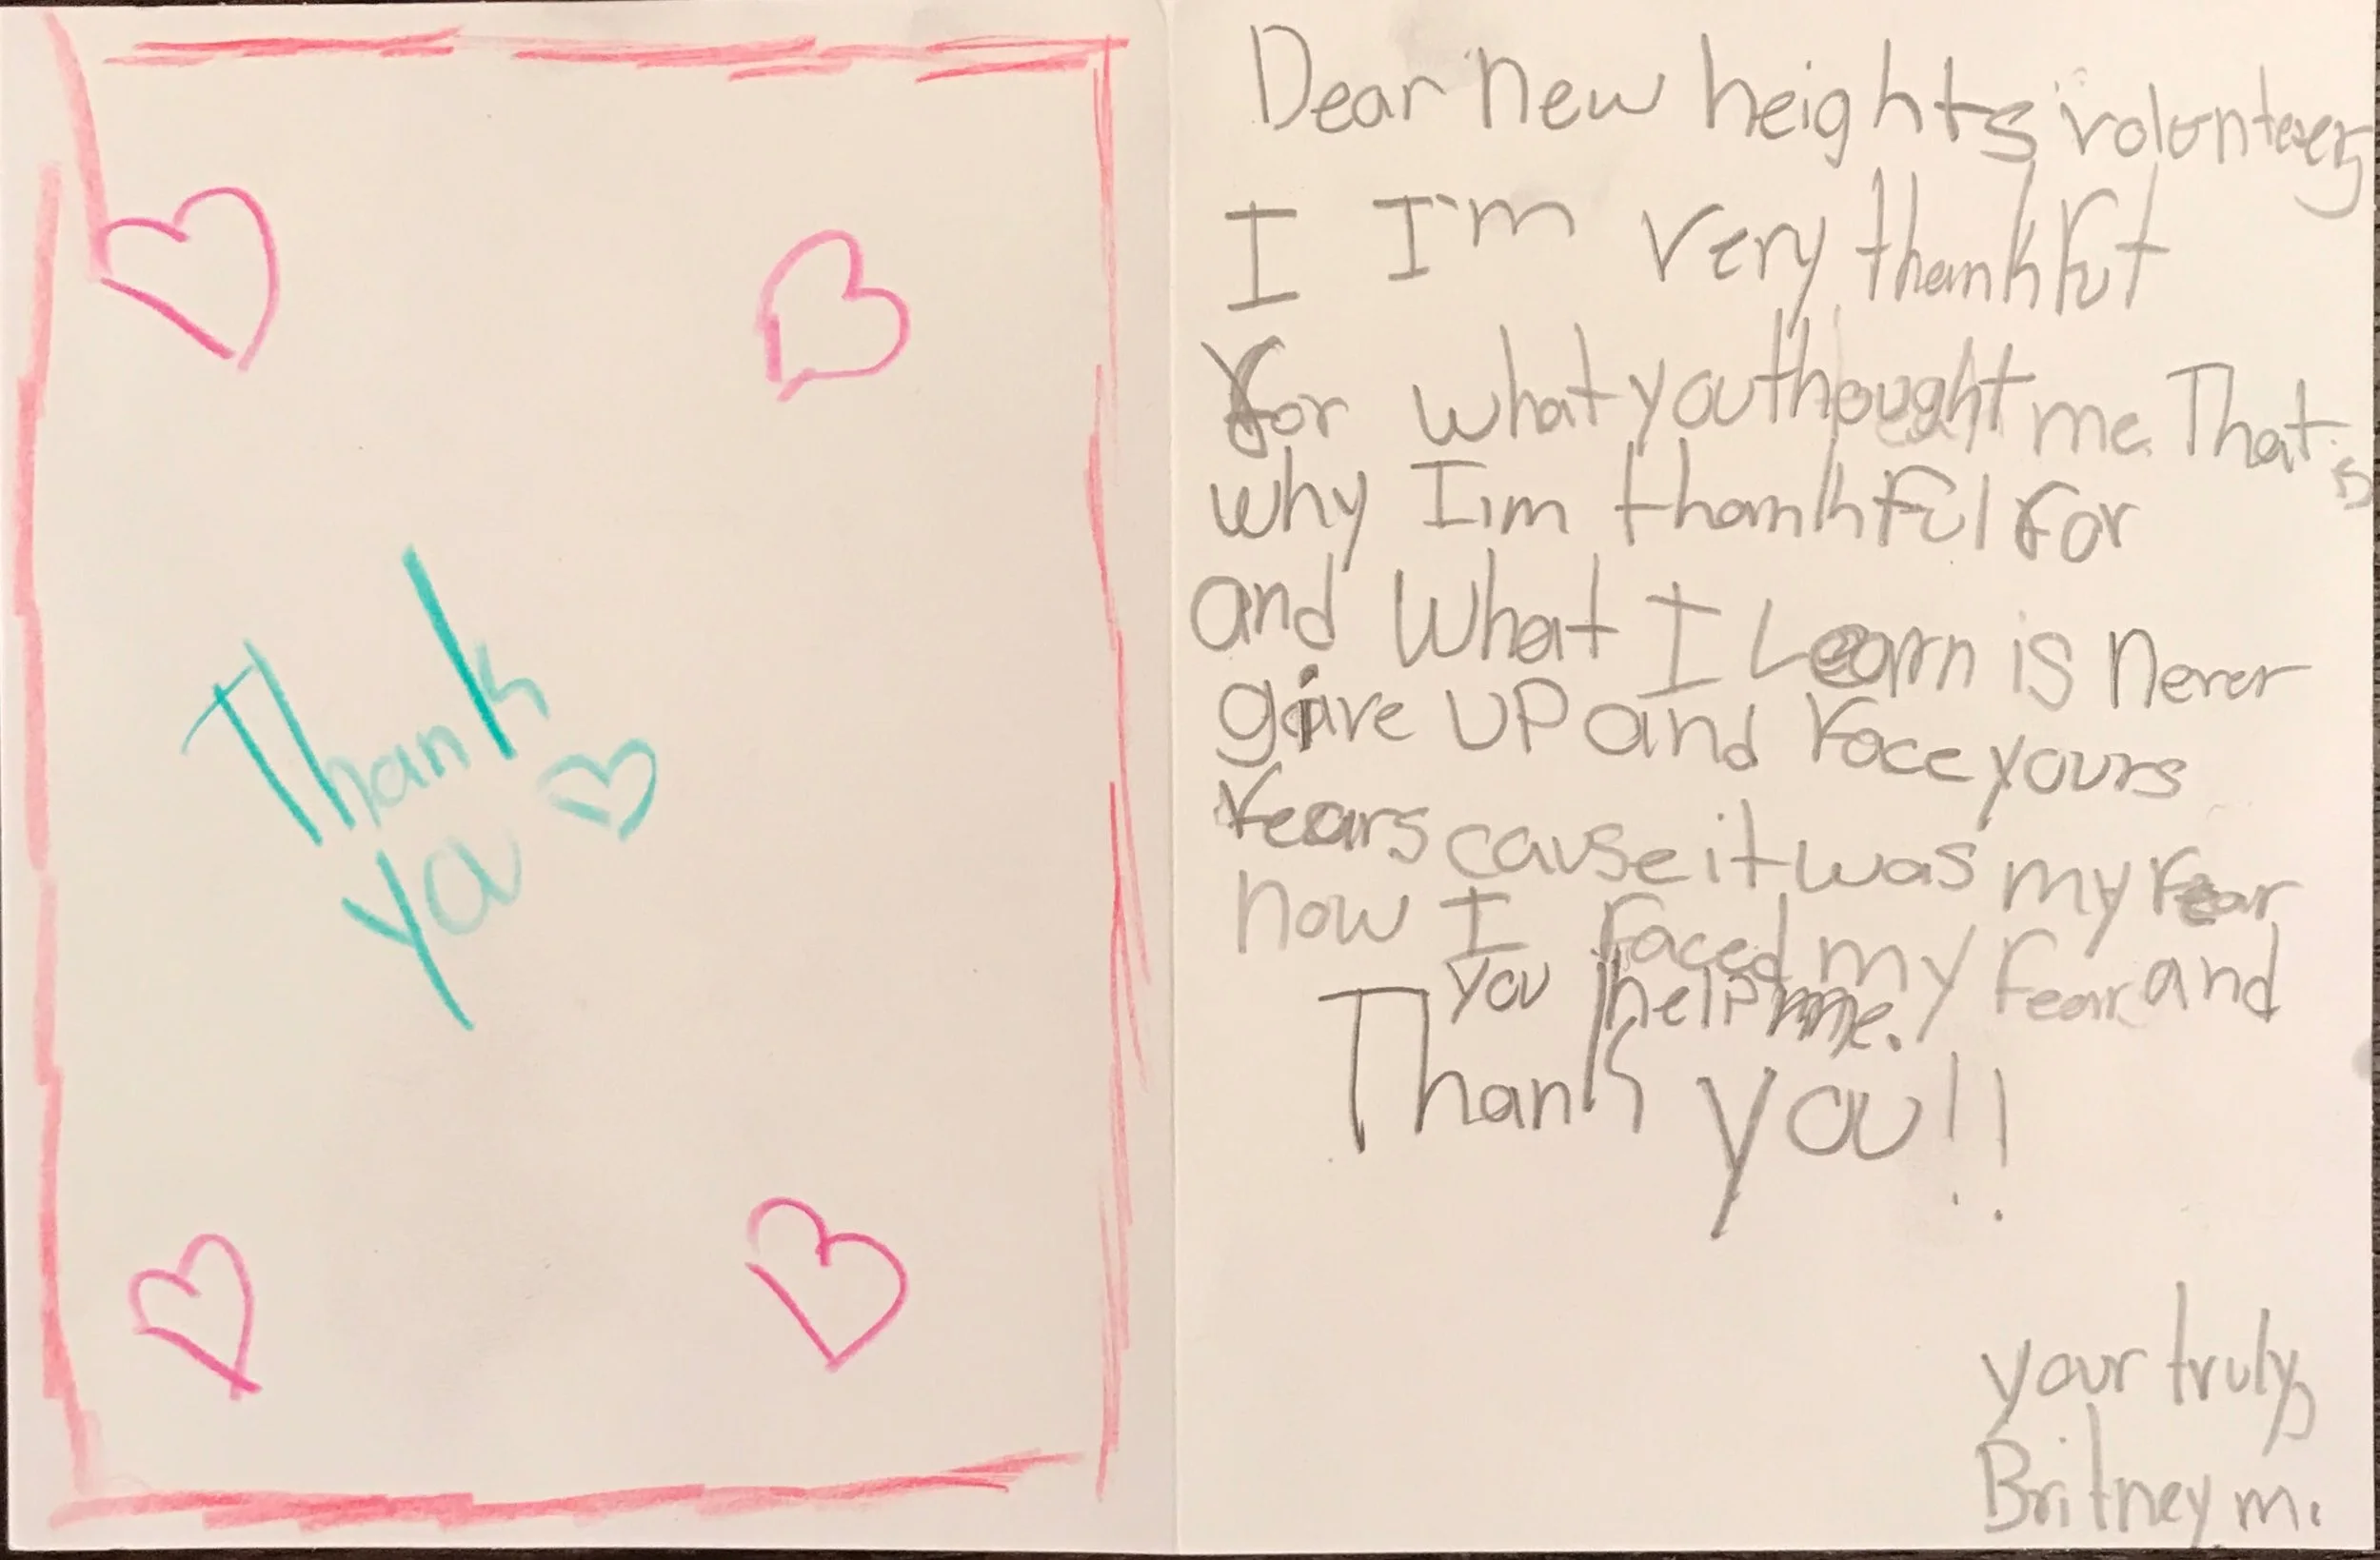 Thank
you
Dear New heights volunteers
I I'm very thankful
for what you thought me. That's
why I'm thankful for
and What I Learn is Never
give UP and face yours
fears cause it was my fear
now I faced my fear and
you help me.
Thank you!!
your truly,
Britney m.